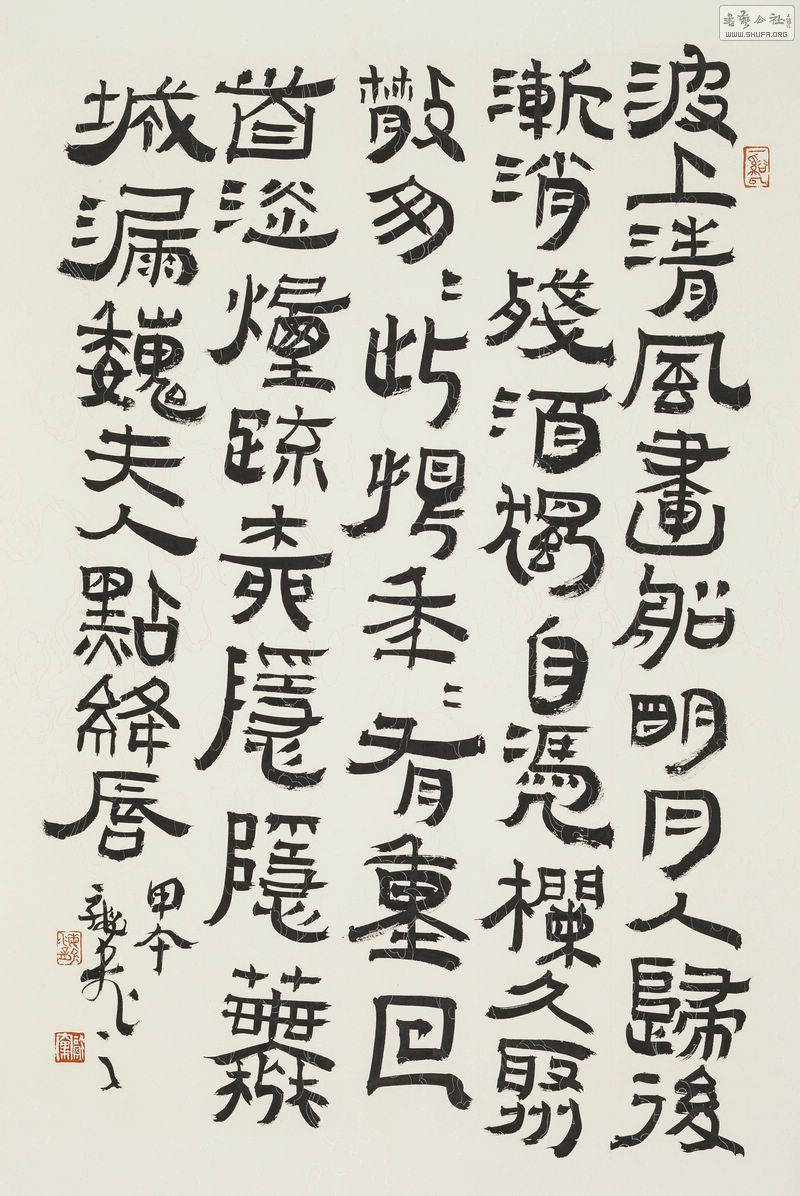 書藝公社
WWW.SHUFA.ORG
波上清風畫船明月人歸後
漸消殘酒獨自憑欄久聚
散匆〻此恨年〻有重回
首淡煙疏柳隱隱蕪
城漏魏夫人點絳唇
甲午